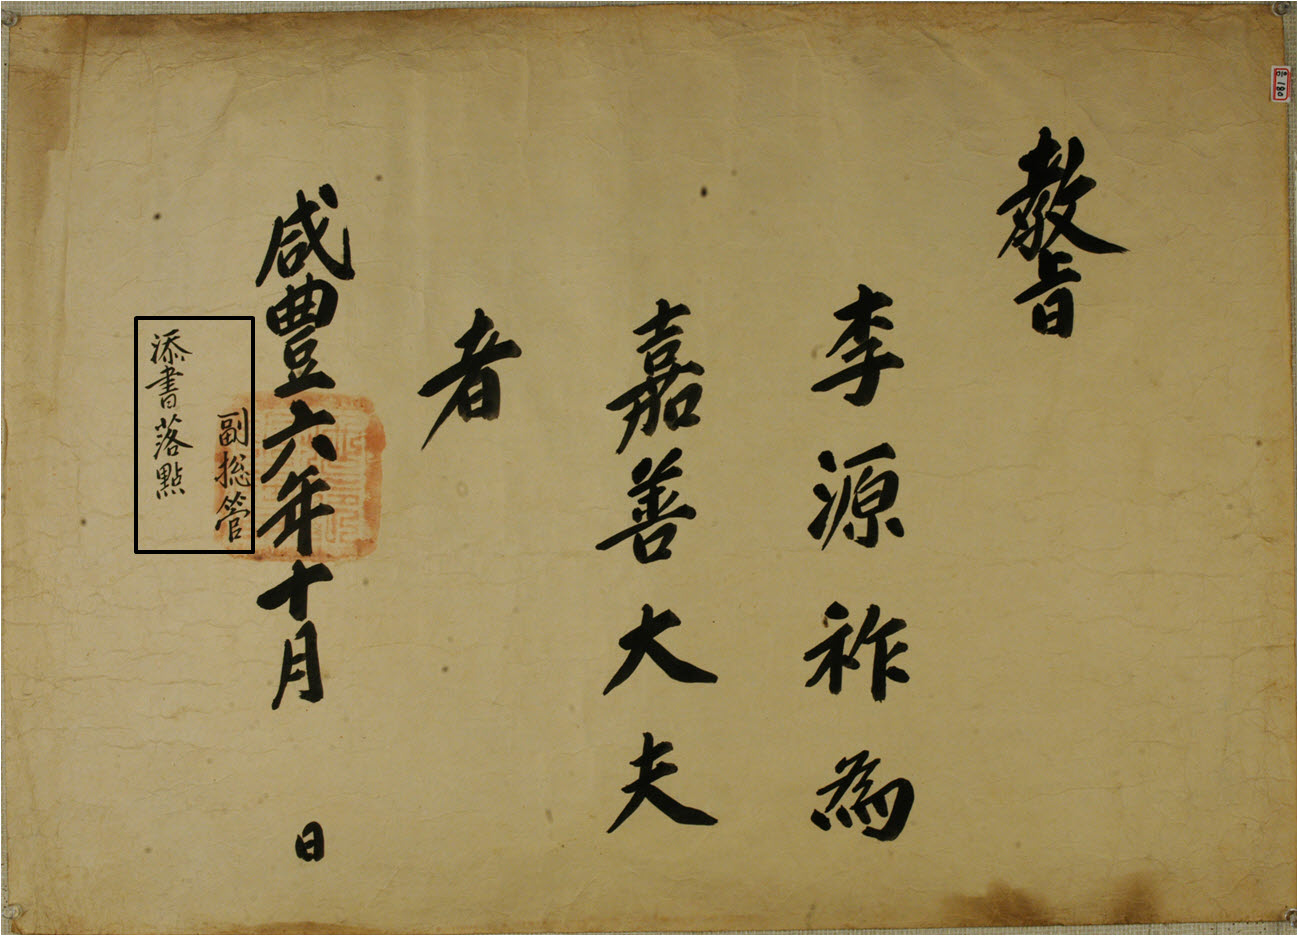 敎旨
李源祚爲
嘉善大夫
者
咸豊六年十月 日
副総管
添書落點
180